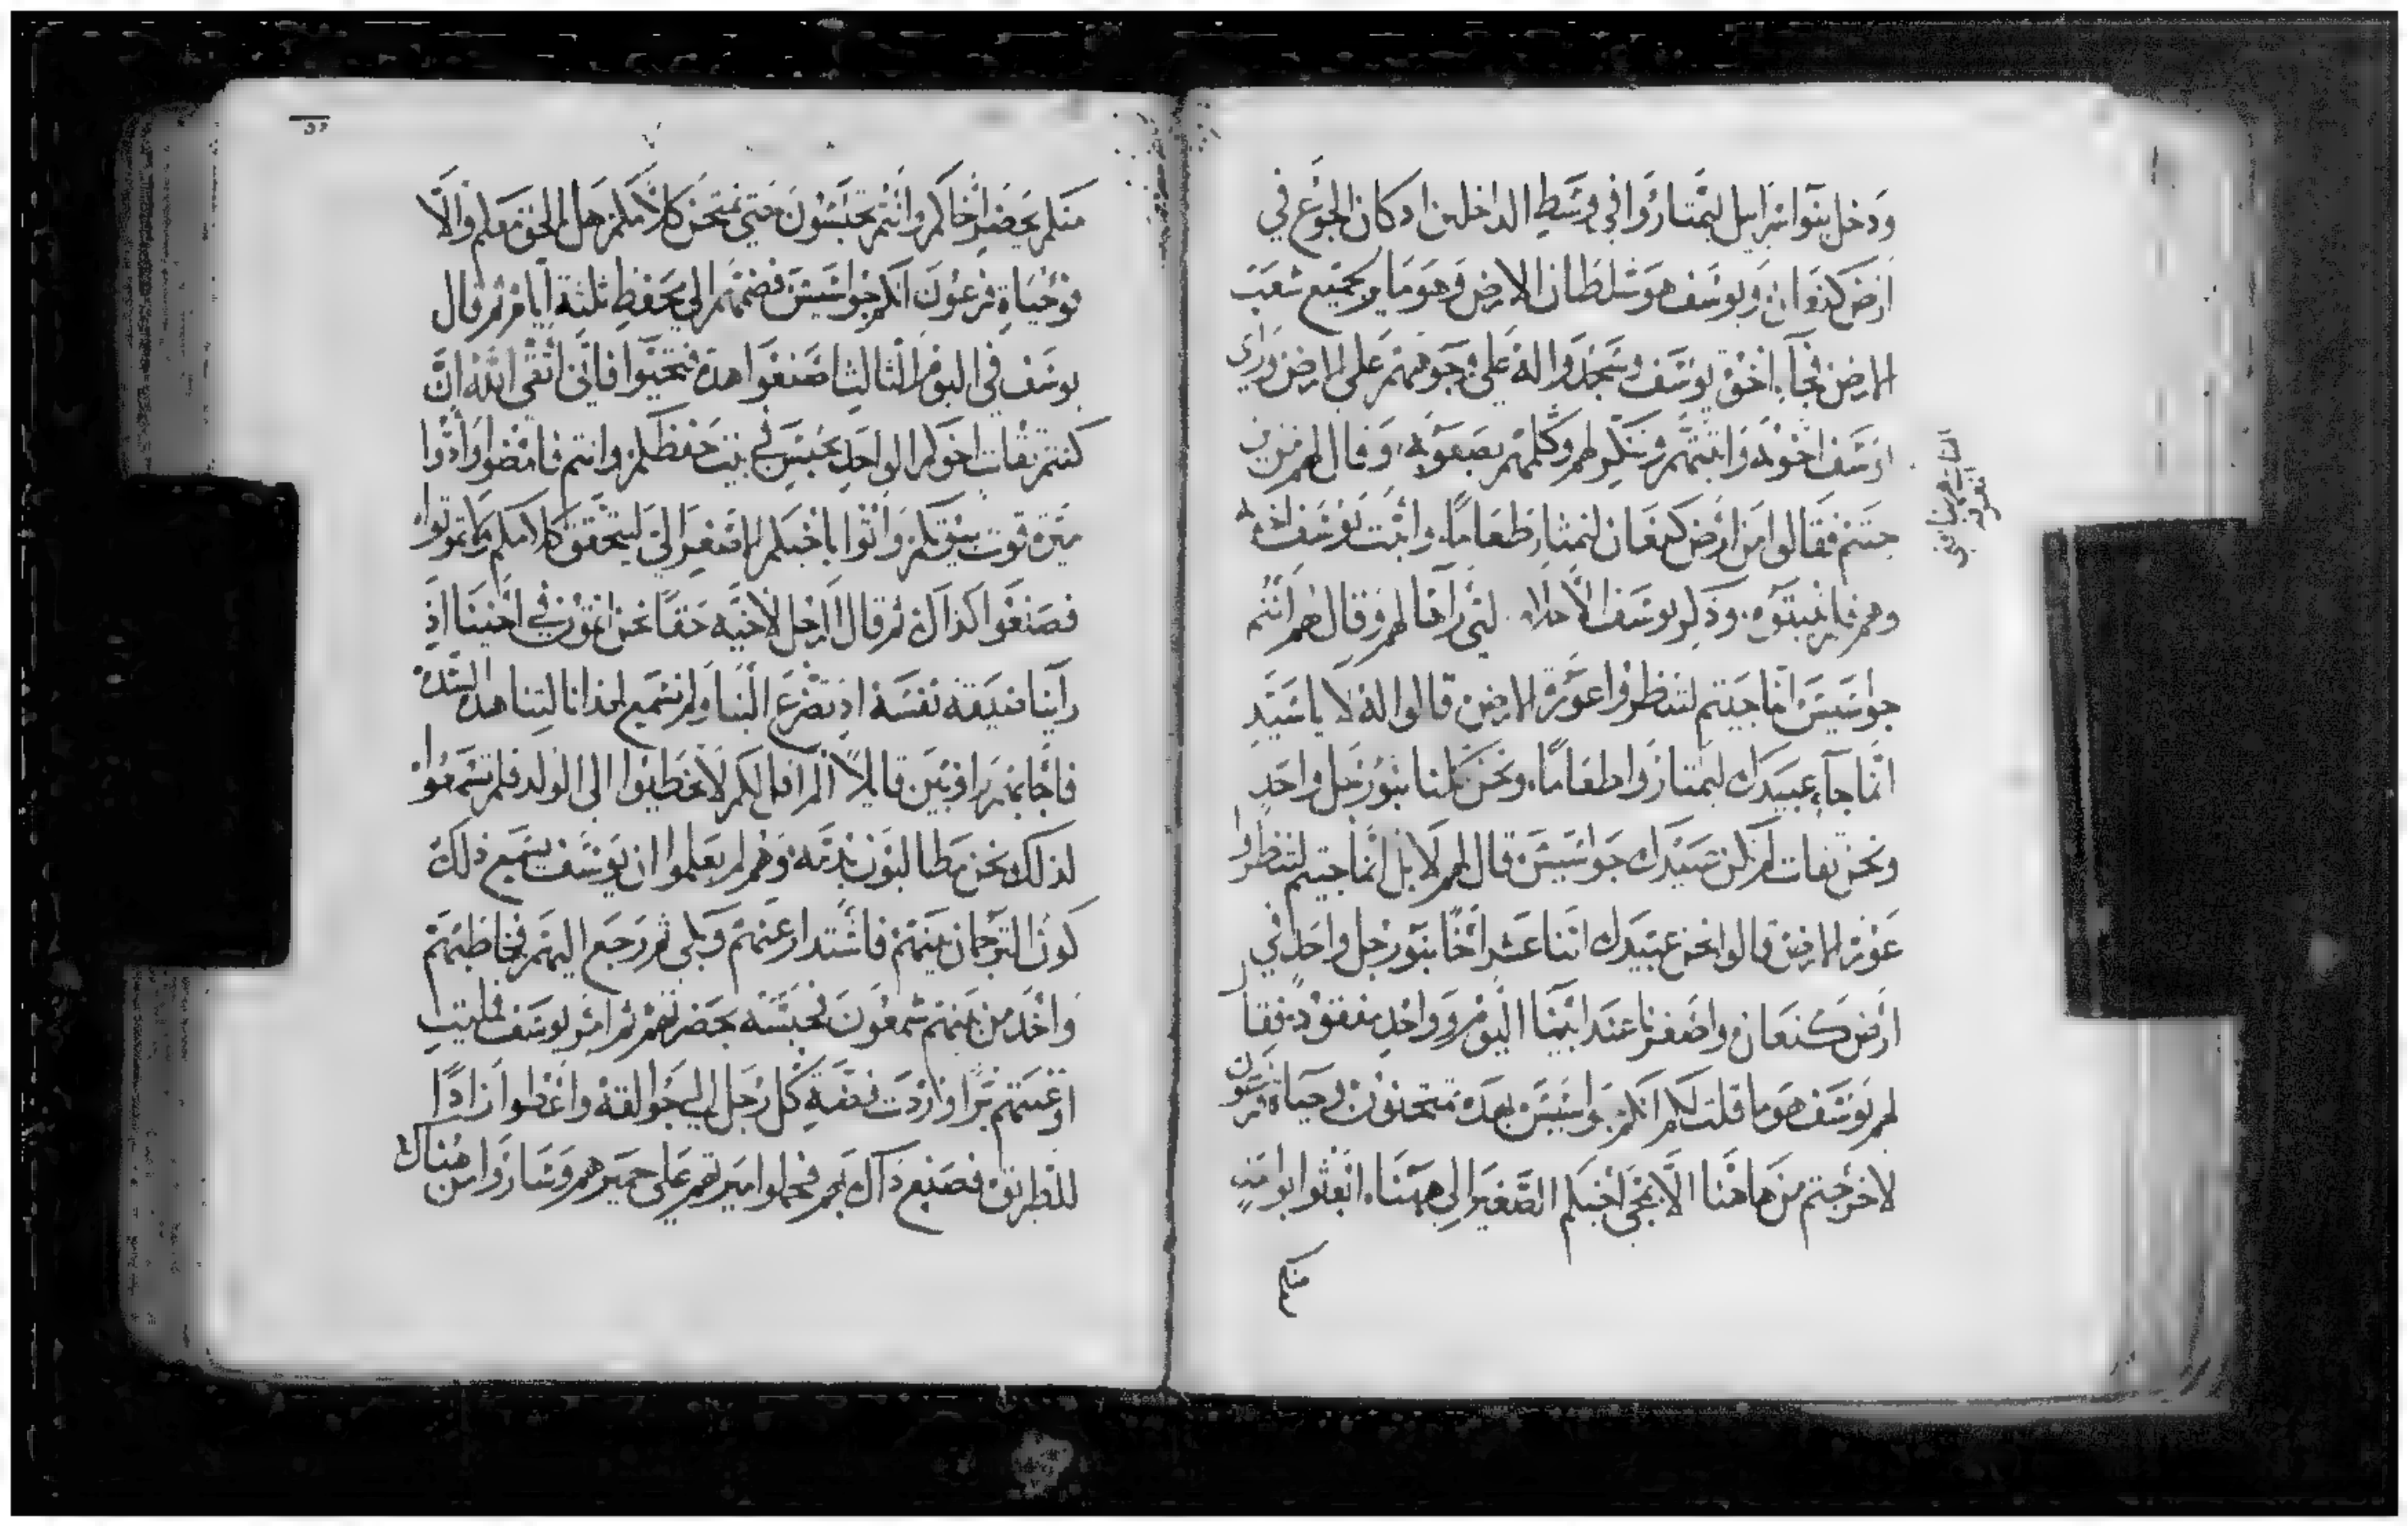 ودخل بنوا اسرايل ليمتاروا في وسط الداخلين اد كان الجوع في
ارض كنعان ويوسف هو سلطان الارض وهو ماير جميع شعب
الارض فجآء اخوة يوسف وسجدوا له على وجوههم على الارض وراى
يوسف اخوته واثبتهم وتنكر لهم وكلمهم بصعوبة وقال لهم من اين
جيتم فقالوا من ارض كنعان لنمتار طعاماً واثبت يوسف اخوته
وهم فلم يثبتوه وذكر يوسف الاحلام التي رآها لهم وقال لهم انتم
جواسيس انما جيتم لتنظروا عورة الارض قالوا له لا يا سيد
انما جآء عبيدك ليمتاروا طعاماً ونحن كلنا بنو رجل واحد
ونحن ثقات لم يكن عبيدك جواسيس قال لهم لا بل انما جيتم لتنظروا
عورة الارض قالوا نحن عبيدك اثنا عشر اخًا بنو رجل واحد في
ارض كنعان واصغرنا عند ابينا اليوم وواحد مفقود فقال
لهم يوسف هو ما قلت لكم انكم جواسيس بهذه تمتحنون وحياة فرعون
لا خرجتم من هاهنا الا بمجي اخيكم الصغير الى ههنا ابعثوا بواحد
منكم
منكم يحضر اخاكم وانتم تحبسون حتى نمتحن كلامكم هل الحق معكم والّا
فوحياة فرعون انكم جواسيس فضمهم الى محفظ ثلثة ايام ثم قال
يوسف في اليوم الثالث اصنعوا هذه فتحيوا فاني اتقي الله ان
كنتم ثقات اخوكم الواحد يحبس في بيت حفظكم وانتم فامضوا وادوا
ميرة قوت بيوتكم واتوا باخيكم الاصغر الي ليتحقق كلامكم ولا تموتوا
فصنعوا كذاك ثم قال الرجل لاخيه حقًا نحن اثمون في اخينا اذ
راينا ضيقة نفسه اذ تضرع الينا ولم نسمع لهذا نالتنا هذه الشدة
فاجابهم راوبين قايلًا الم اقل لكم لا تخطيوا الى الولد فلم تسمعوا
لذلك نحن مطالبون بدمه وهم لم يعلموا ان يوسف يسمع ذلك
كون الترجمان بينهم فاستدار عنهم وبكى ثم رجع اليهم فخاطبهم
واخذ من بينهم شمعون فحبسه بحضرتهم ثم امر يوسف
اوعيتهم برًا وازدت نفقة كل رجل الى جوالقه واعطوا زادًا
للطريق فصنع ذاك بهم فحملوا ميرتهم على حميرهم وساروا من هناك